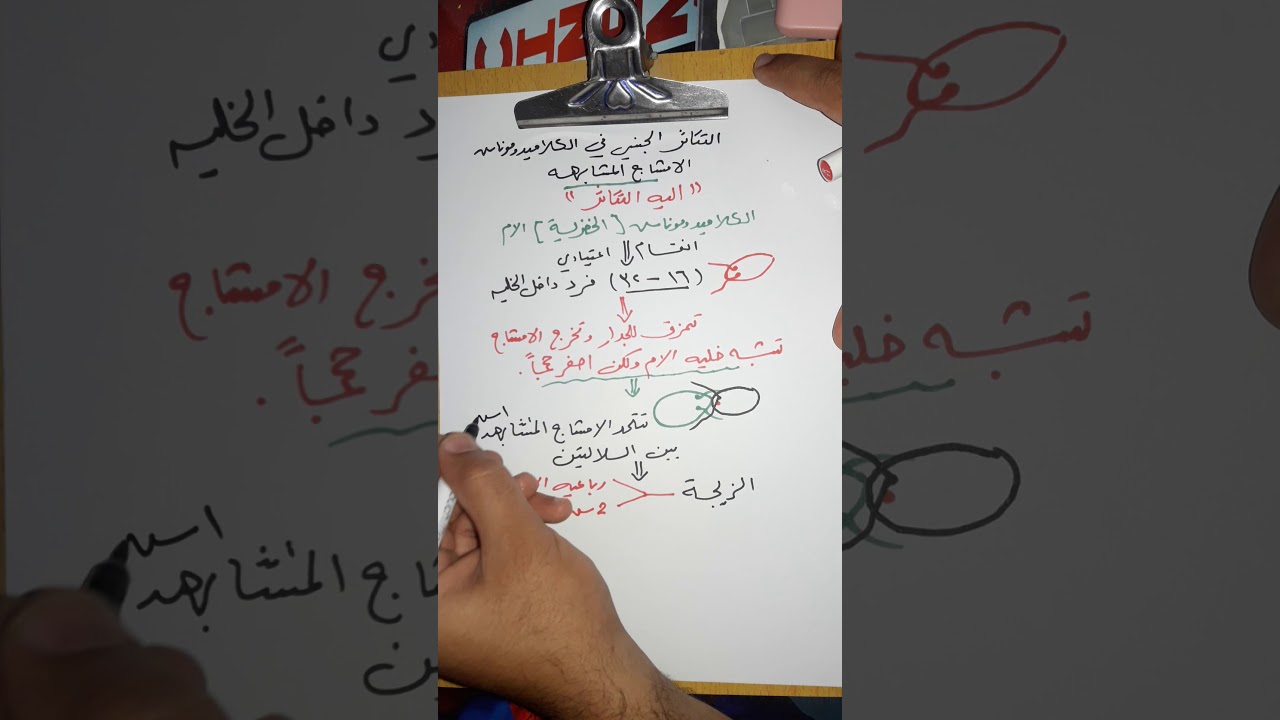 التكاثر الجنسي في الكلاميدوموناس
الامشاج المتشابهه
"اليه التكاثر"
الكلاميدوموناس [الخضرية] الام
انقسام اعتيادي
(١٦ - ٣٢) فرد داخل الخليه
تتمزق الجدار وتخرج الامشاج
تشبه خليه الام ولكن اصغر حجماً.
تتحد الامشاج المتشابهه
بين السلالتين
الزيجة رباعيه
2س